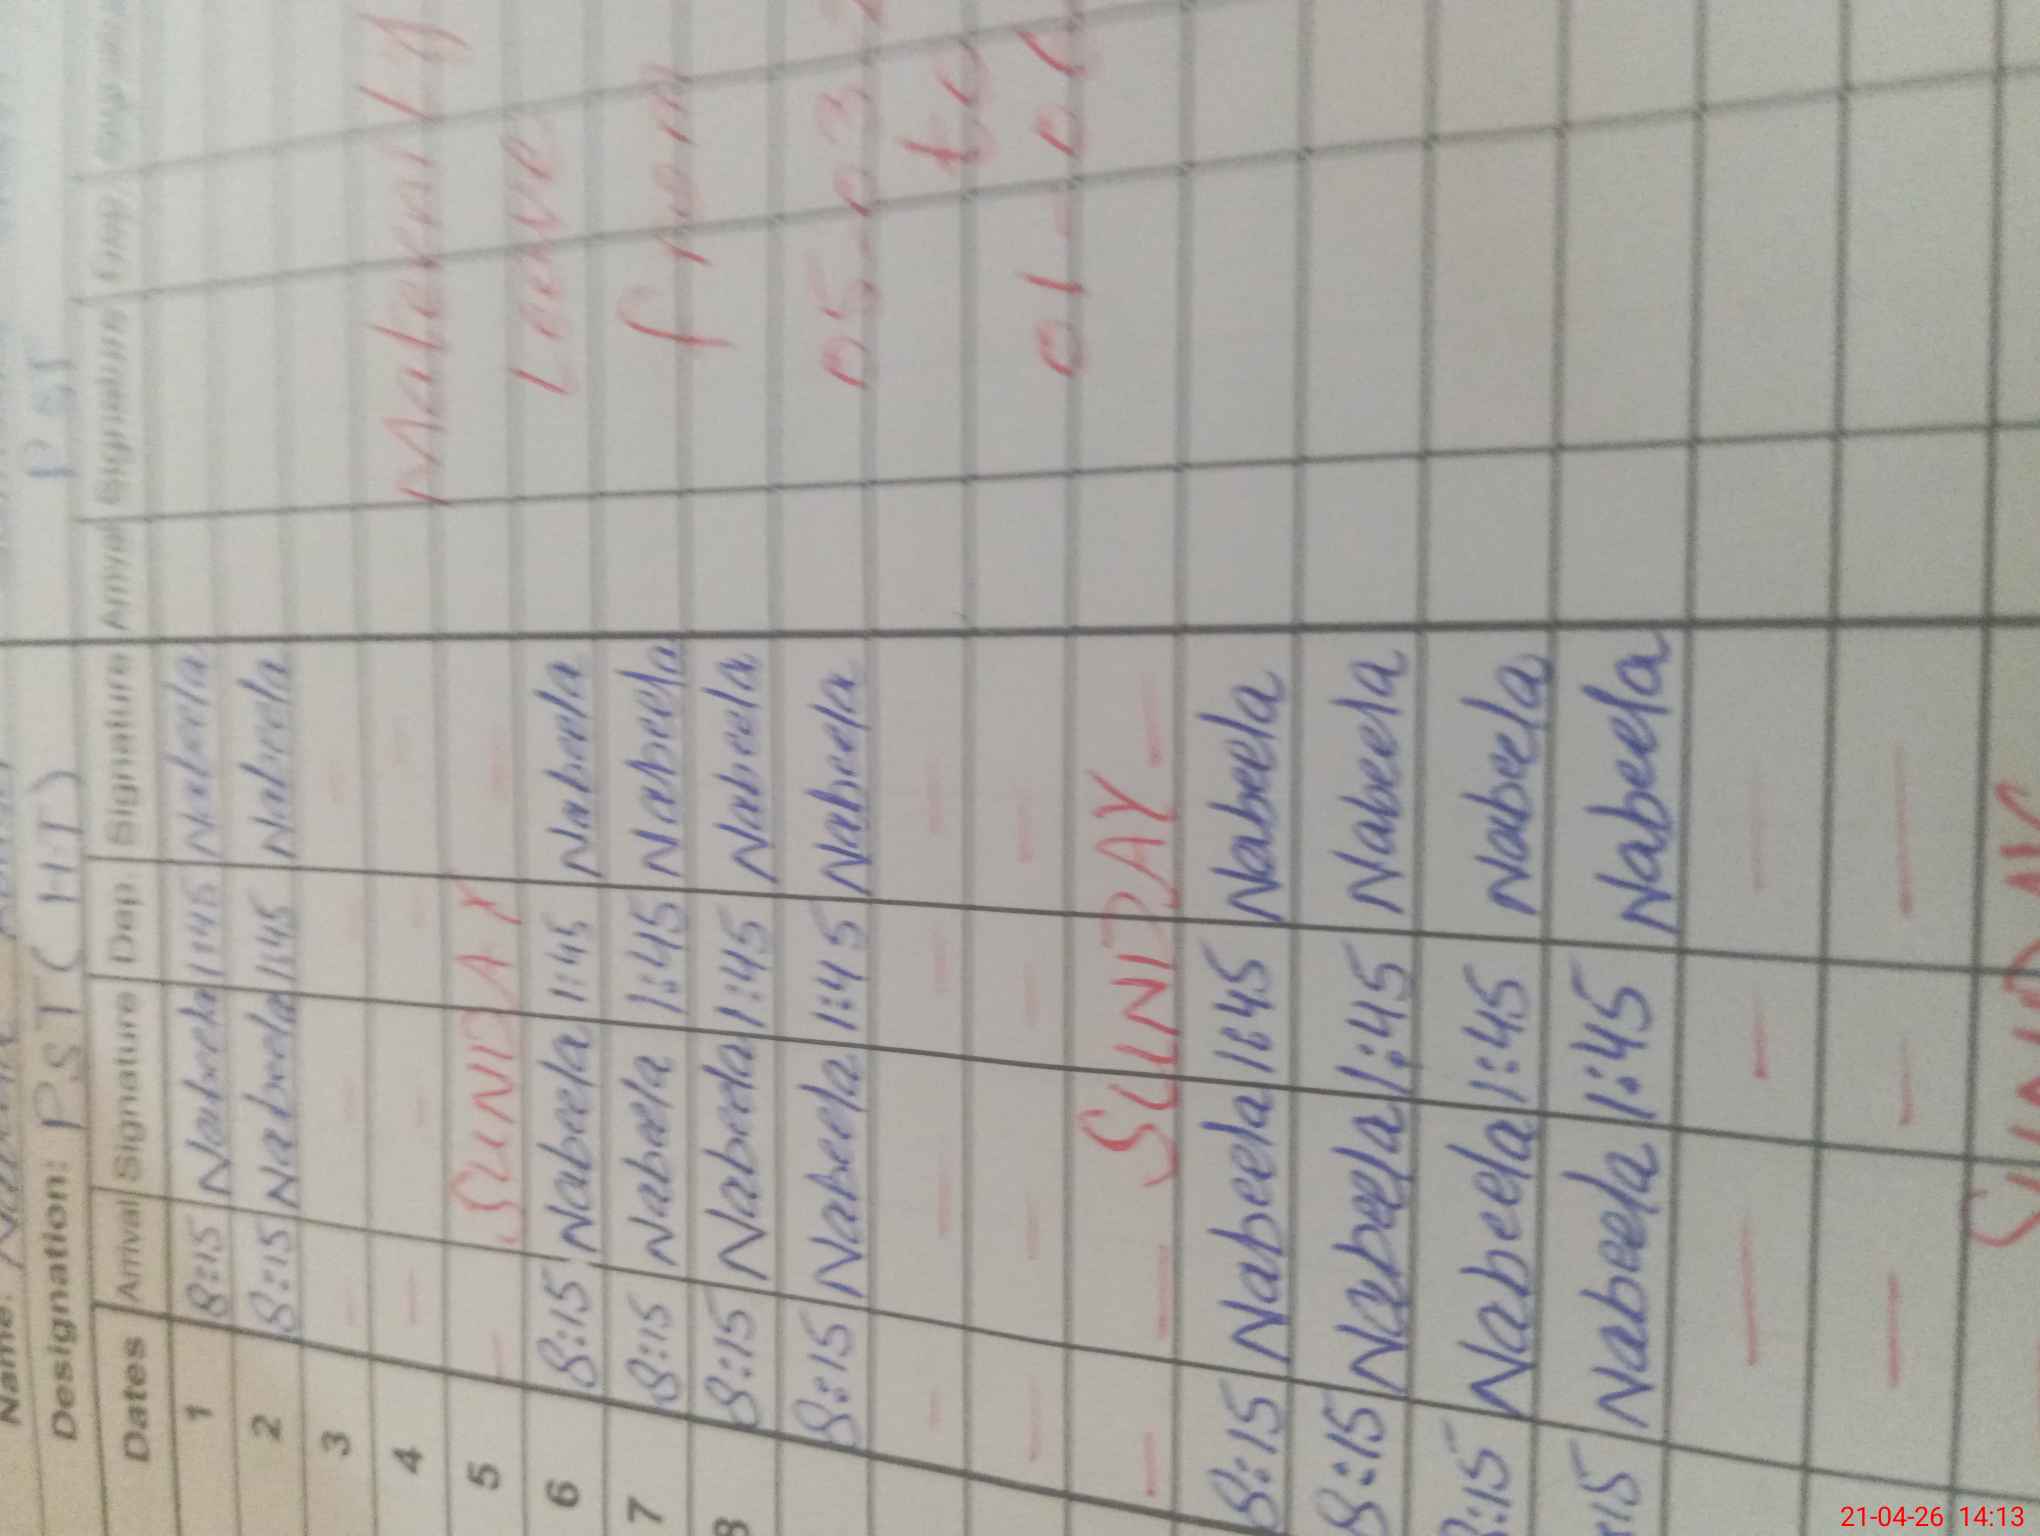 Name: Nabeela
Designation: PST (HT) PST
Dates Arrival Signature Dep. Signature Arrival Signature Dep.
1 8:15 Nabeela 1:45 Nabeela
2 8:15 Nabeela 1:45 Nabeela
3 - - - -
4 - - - - Maternity
5 - SUNDAY -
6 8:15 Nabeela 1:45 Nabeela Leave
7 8:15 Nabeela 1:45 Nabeela from
8 8:15 Nabeela 1:45 Nabeela
8:15 Nabeela 1:45 Nabeela 05-03
- - - - - to
- - - - - 01-0
- - SUNDAY -
8:15 Nabeela 1:45 Nabeela
8:15 Nabeela 1:45 Nabeela
:15 Nabeela 1:45 Nabeela
:15 Nabeela 1:45 Nabeela
- - -
- - -
SUNDAY
21-04-26 14:13